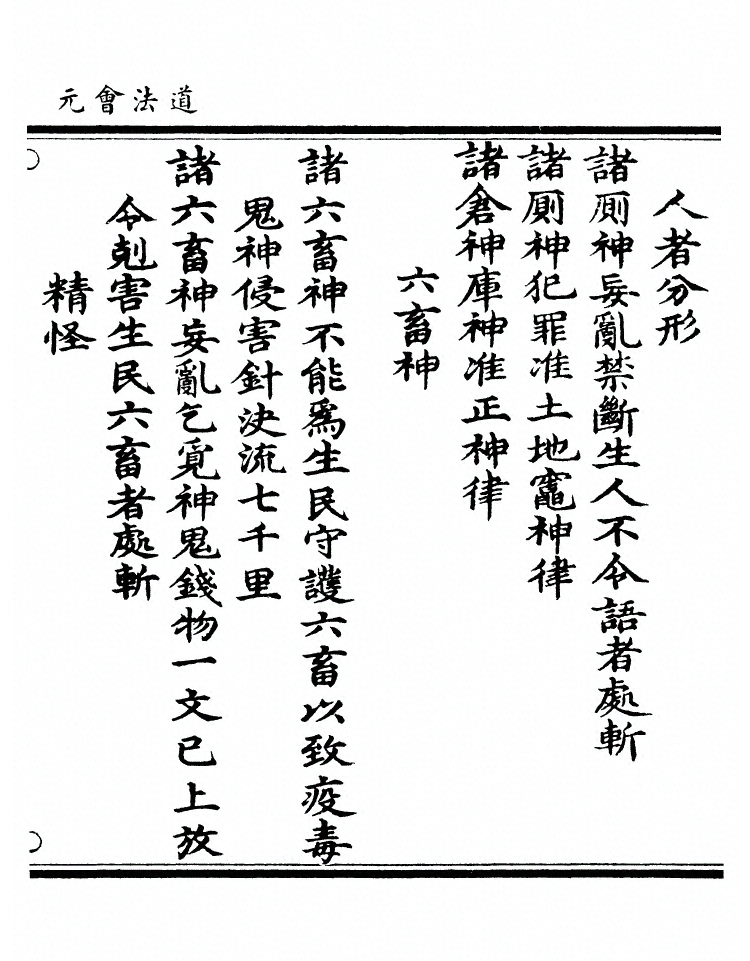 道法會元
人者分形
諸厠神妄亂禁斷生人不令語者處斬
諸厠神犯罪准土地竈神律
諸倉神庫神准正神律
六畜神
諸六畜神不能爲生民守護六畜以致疫毒
鬼神侵害針决流七千里
諸六畜神妄亂乞覓神鬼錢物一文已上放
令剋害生民六畜者處斬
精怪